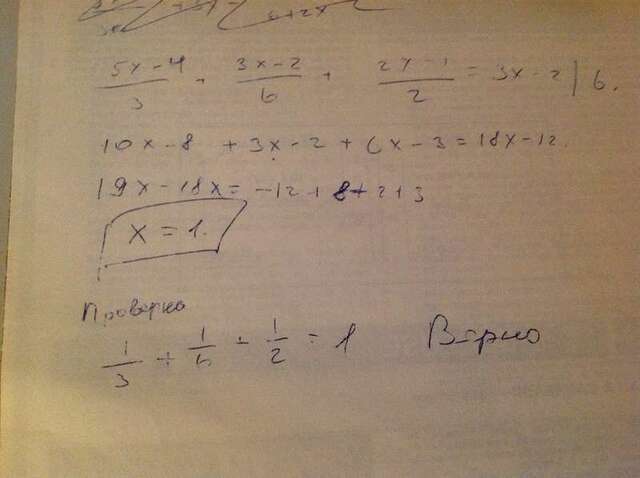 5x-4/3 + 3x-2/6 + 2x-1/2 = 3x-2 | 6.
10x-8 + 3x-2 + 6x-3 = 18x-12.
19x-18x = -12+8+2+3
x = 1.
Проверка
1/3 + 1/6 + 1/2 = 1 Верно